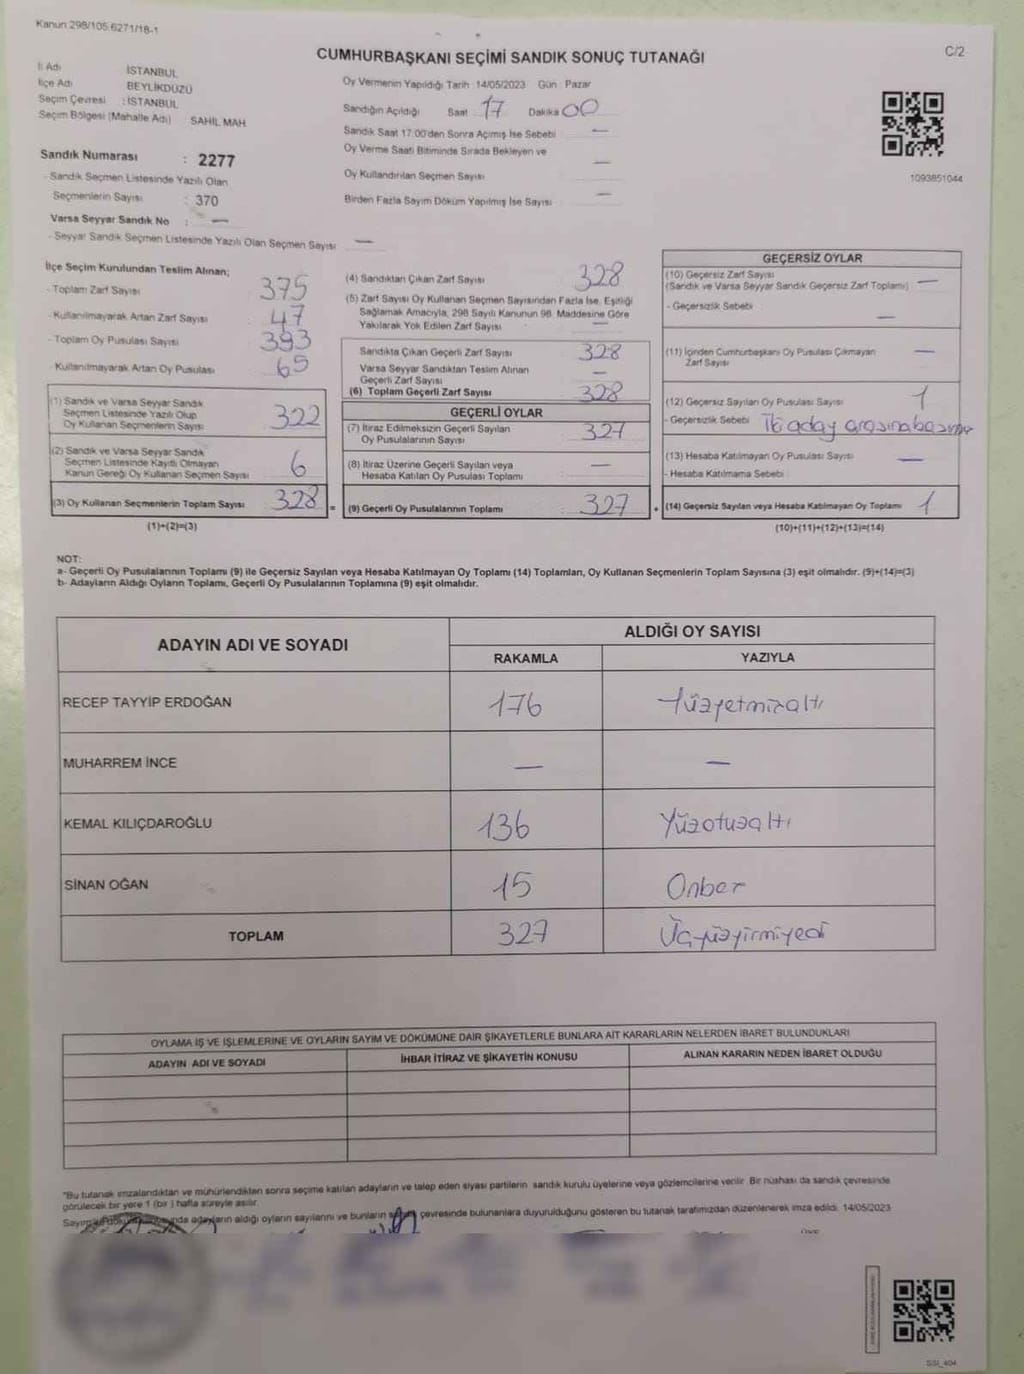 Kanun 298/105 6271/18-1
CUMHURBAŞKANI SEÇİMİ SANDIK SONUÇ TUTANAĞI
C/2
İl Adı İSTANBUL
İlçe Adı BEYLİKDÜZÜ
Seçim Çevresi : İSTANBUL
Seçim Bölgesi (Mahalle Adı) : SAHİL MAH
Sandık Numarası : 2277
- Sandık Seçmen Listesinde Yazılı Olan
Seçmenlerin Sayısı : 370
Varsa Seyyar Sandık No : —
- Seyyar Sandık Seçmen Listesinde Yazılı Olan Seçmen Sayısı —
Oy Vermenin Yapıldığı Tarih : 14/05/2023 Gün : Pazar
Sandığın Açıldığı Saat 17 Dakika 00
Sandık Saat 17:00'den Sonra Açımış İse Sebebi —
Oy Verme Saati Bitiminde Sırada Bekleyen ve
Oy Kullandırılan Seçmen Sayısı —
Birden Fazla Sayım Döküm Yapılmış İse Sayısı —
1093851044
İlçe Seçim Kurulundan Teslim Alınan;
- Toplam Zarf Sayısı 375
- Kullanılmayarak Artan Zarf Sayısı 47
- Toplam Oy Pusulası Sayısı 393
- Kullanılmayarak Artan Oy Pusulası 65
(1) Sandık ve Varsa Seyyar Sandık
Seçmen Listesinde Yazılı Olup
Oy Kullanan Seçmenlerin Sayısı 322
(2) Sandık ve Varsa Seyyar Sandık
Seçmen Listesinde Kayıtlı Olmayan
Kanun Gereği Oy Kullanan Seçmen Sayısı 6
(3) Oy Kullanan Seçmenlerin Toplam Sayısı 328 =
(1)+(2)=(3)
(4) Sandıktan Çıkan Zarf Sayısı 328
(5) Zarf Sayısı Oy Kullanan Seçmen Sayısından Fazla İse, Eşitliği
Sağlamak Amacıyla, 298 Sayılı Kanunun 98. Maddesine Göre
Yakılarak Yok Edilen Zarf Sayısı —
Sandıkta Çıkan Geçerli Zarf Sayısı 328
Varsa Seyyar Sandıktan Teslim Alınan
Geçerli Zarf Sayısı —
(6) Toplam Geçerli Zarf Sayısı 328
GEÇERLİ OYLAR
(7) İtiraz Edilmeksizin Geçerli Sayılan
Oy Pusulalarının Sayısı 327
(8) İtiraz Üzerine Geçerli Sayılan veya
Hesaba Katılan Oy Pusulası Toplamı —
(9) Geçerli Oy Pusulalarının Toplamı : 327 +
GEÇERSİZ OYLAR
(10) Geçersiz Zarf Sayısı
(Sandık ve Varsa Seyyar Sandık Geçersiz Zarf Toplamı) —
- Geçersizlik Sebebi —
(11) İçinden Cumhurbaşkanı Oy Pusulası Çıkmayan
Zarf Sayısı —
(12) Geçersiz Sayılan Oy Pusulası Sayısı 1
- Geçersizlik Sebebi İki aday arasına basımış
(13) Hesaba Katılmayan Oy Pusulası Sayısı —
- Hesaba Katılmama Sebebi
(14) Geçersiz Sayılan veya Hesaba Katılmayan Oy Toplamı 1
(10)+(11)+(12)+(13)=(14)
NOT:
a- Geçerli Oy Pusulalarının Toplamı (9) ile Geçersiz Sayılan veya Hesaba Katılmayan Oy Toplamı (14) Toplamları, Oy Kullanan Seçmenlerin Toplam Sayısına (3) eşit olmalıdır. (9)+(14)=(3)
b- Adayların Aldığı Oyların Toplamı, Geçerli Oy Pusulalarının Toplamına (9) eşit olmalıdır.
ADAYIN ADI VE SOYADI
ALDIĞI OY SAYISI
RAKAMLA YAZIYLA
RECEP TAYYİP ERDOĞAN 176 Yüzyetmişaltı
MUHARREM İNCE — —
KEMAL KILIÇDAROĞLU 136 Yüzotuzaltı
SİNAN OĞAN 15 Onbeş
TOPLAM 327 Üçyüzyirmiyedi
OYLAMA İŞ VE İŞLEMLERİNE VE OYLARIN SAYIM VE DÖKÜMÜNE DAİR ŞİKAYETLERLE BUNLARA AİT KARARLARIN NELERDEN İBARET BULUNDUKLARI
ADAYIN ADI VE SOYADI İHBAR İTİRAZ VE ŞİKAYETİN KONUSU ALINAN KARARIN NEDEN İBARET OLDUĞU
"Bu tutanak imzalandıktan ve mühürlendikten sonra seçime katılan adayların ve talep eden siyasi partilerin sandık kurulu üyelerine veya gözlemcilerine verilir. Bir nüshası da sandık çevresinde
görülecek bir yere 1 (bir) hafta süreyle asılır.
Sayım adayların aldığı oyların sayılarını ve bunların çevresinde bulunanlara duyurulduğunu gösteren bu tutanak tarafımızdan düzenlenerek imza edildi. 14/05/2023
Üye
SSI_404